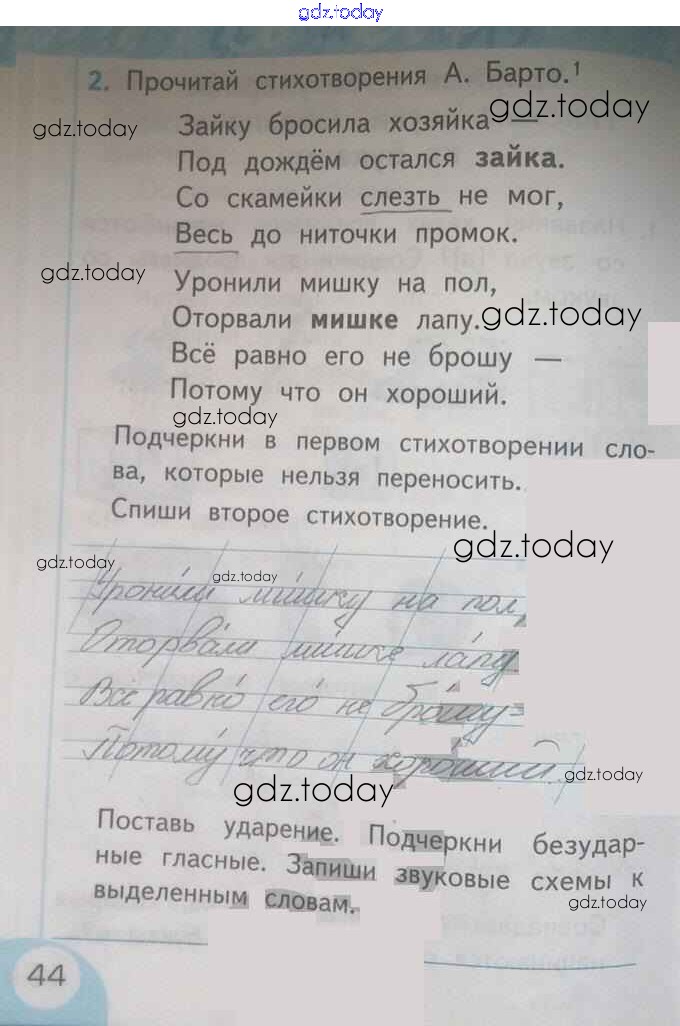 gdz.today
2. Прочитай стихотворения А. Барто.¹
gdz.today
gdz.today
Зайку бросила хозяйка —
Под дождём остался зайка.
Со скамейки слезть не мог,
Весь до ниточки промок.
gdz.today
Уронили мишку на пол,
Оторвали мишке лапу.
gdz.today
Всё равно его не брошу —
Потому что он хороший.
gdz.today
Подчеркни в первом стихотворении сло-
ва, которые нельзя переносить.
Спиши второе стихотворение.
gdz.today
gdz.today
gdz.today
Урони́ли ми́шку на пол,
Оторва́ли ми́шке ла́пу
Всё равно́ его́ не бро́шу-
Потому́ что он хоро́ший.
gdz.today
gdz.today
Поставь ударение. Подчеркни безудар-
ные гласные. Запиши звуковые схемы к
выделенным словам.
gdz.today
44